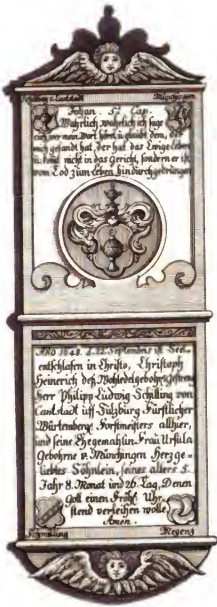 Schilling v. Canstadt Münchingen
Johan. 5. Cap.
Wahrlich wahrlich ich sage
euch, wer mein Wort höret, u. glaubt dem, der
mich gesandt hat, der hat das Ewige Leben
u. komt nicht in das Gericht, sondern er ist
vom Tod zum Leben hindurchgedrungen
ANO 1648. d. 12. Septembris ist Seel.
entschlafen in Christo, Christoph
Heinerich deß Wohledelgebohrn Gestreng
Herr Philipp Ludwig Schilling von
Canstadt uff Sulzburg Fürstlicher
Würtemberg. Forstmeisters allhier,
und seine Ehegemahlin Frau Ursula
Gebohrne v. Münchingen Herzge-
liebtes Söhnlein, seines alters 5.
Jahr 8. Monat und 26. Tag, Denen
Gott einen Fröhl. Uhr-
stend verleihen wolle
Amen.
Megenz